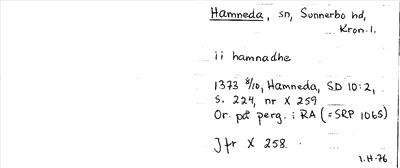 Hamneda, sn, Sunnerbo hd,
Kron. l.
ii hamnadhe
1373 8/10, Hamneda, SD 10:2,
s. 224, nr X 259
Or. på perg. i RA (= SRP 1065)
Jfr X 258
1.H-76